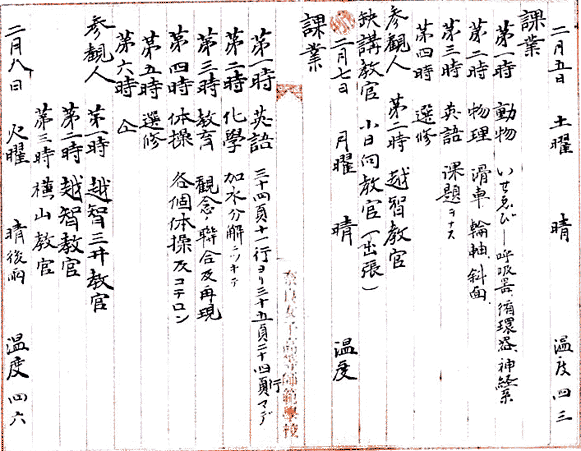 二月五日 土曜 晴 温度 四三
課業
第一時 動物 いせゑびー呼吸器、循環器、神経系
第二時 物理 滑車、輪軸、斜面、
第三時 英語 課題ヲナス
第四時 選修
参観人 第一時 越智教官
缺講教官 小日向教官(出張)
二月七日 月曜 晴 温度
課業
第一時 英語 三十四頁十一行ヨリ三十五頁二十四行マデ
第二時 化學 加水分解ニツキテ
第三時 教育 観念ノ聯合及再現
第四時 体操 各個体操及コテロン
第五時 選修
第六時 仝
参観人 第一時 越智三井教官
第二時 越智教官
第三時 横山教官
二月八日 火曜 晴後雨 温度 四六
奈良女子高等師範學校